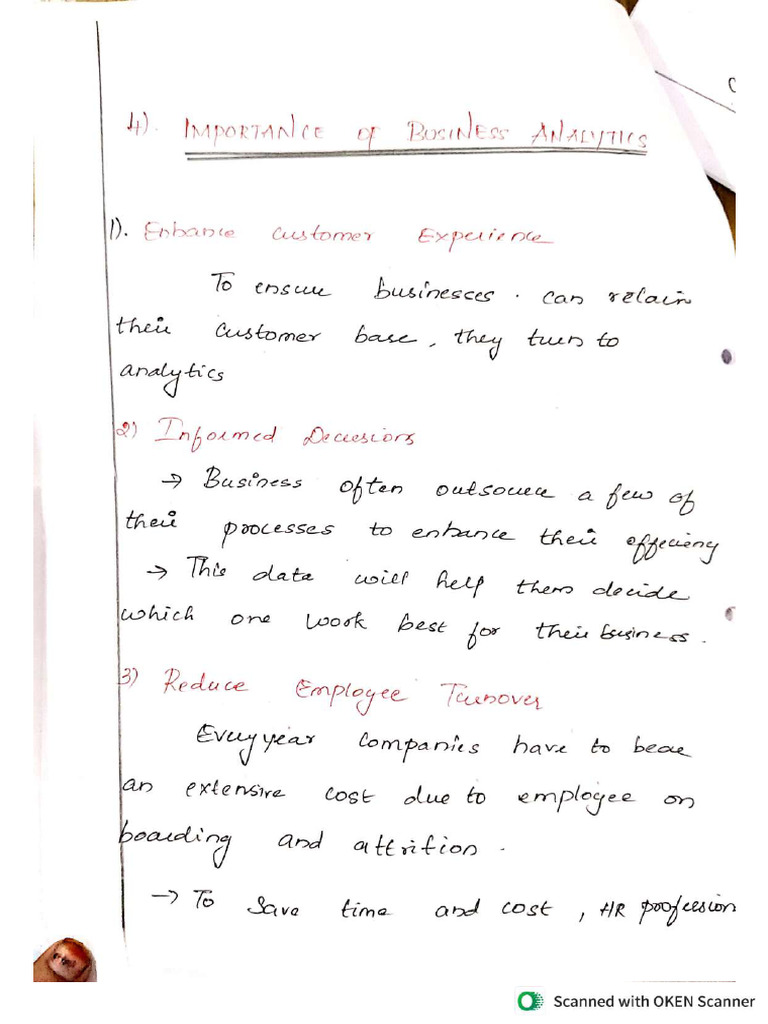 4). IMPORTANCE OF BUSINESS ANALYTICS
1). Enhance Customer Experience
To ensure businesses. can retain
their customer base, they turn to
analytics
2) Informed Decisions
→ Business often outsource a few of
their processes to enhance their efficiency
→ This data will help them decide
which one work best for their business.
3) Reduce Employee Turnover
Every year companies have to bear
an extensive cost due to employee on
boarding and attrition.
→ To save time and cost, HR profession
Scanned with OKEN Scanner